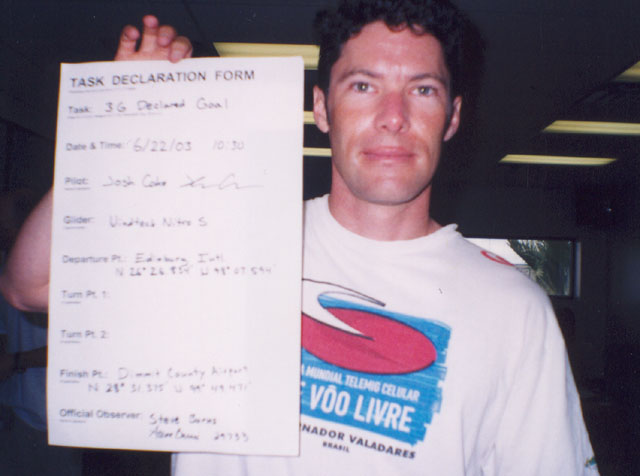 TASK DECLARATION FORM
Task: 3G Declared Goal
Date & Time: 6/22/03 10:30
Pilot: Josh
Glider: Windtech Nitro S
Departure Pt.: Edinburg Intl.
N 26° 26.
Turn Pt. 1:
Turn Pt. 2:
Finish Pt.: Dimmit County Airport
N 28° 31.375' W 99° 49.471'
Official Observer: Steve
29733
MUNDIAL TELEMIG CELULAR
VÔO LIVRE
NADOR VALADARES
BRASIL